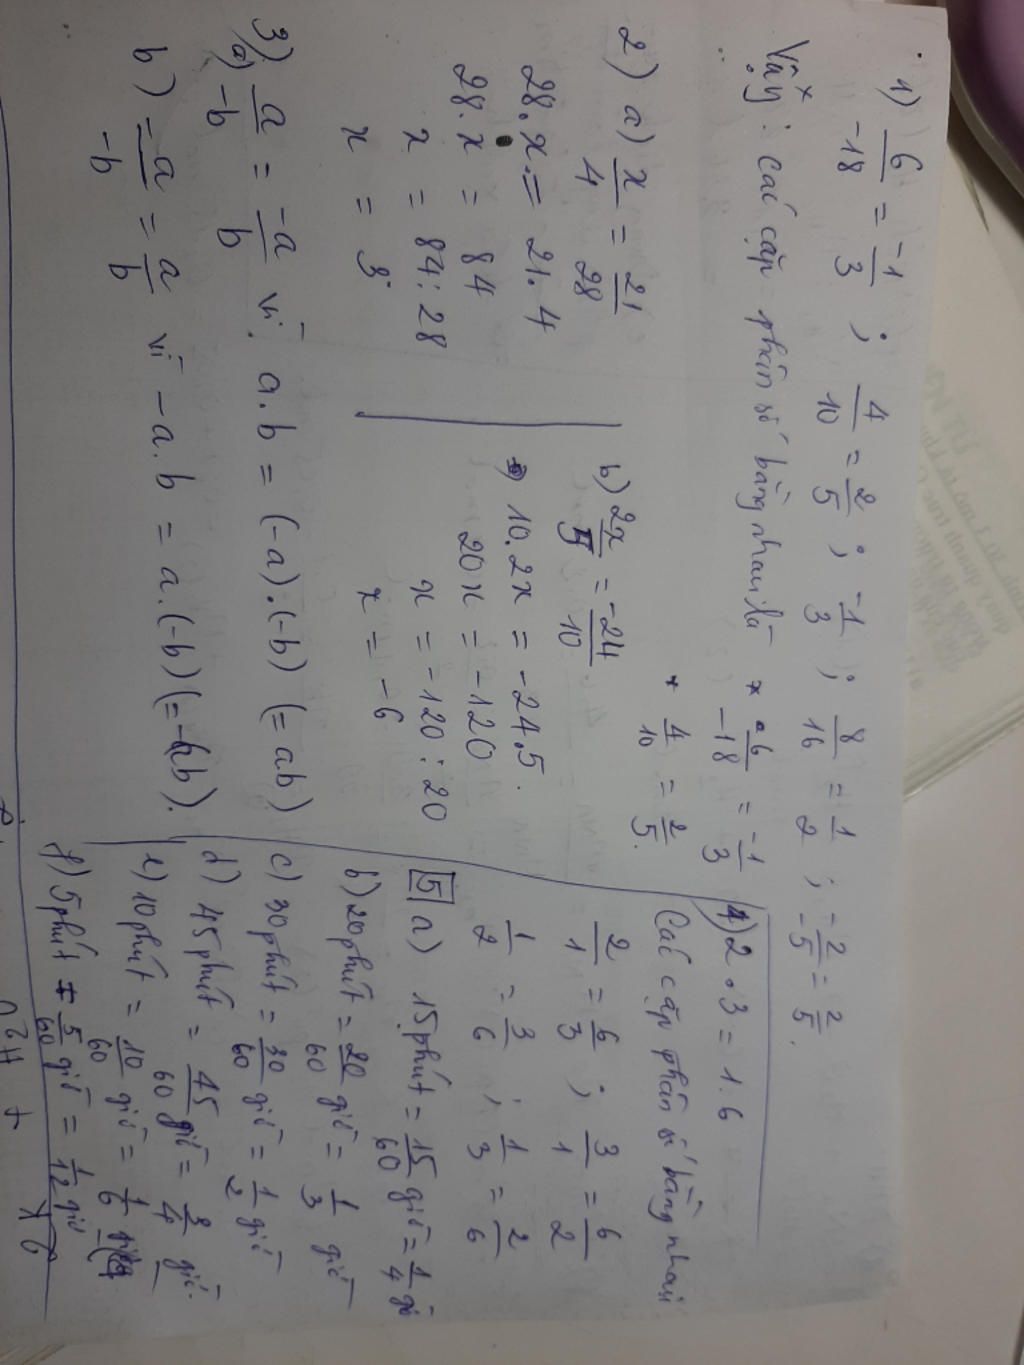 1) 6/-18 = -1/3 ; 4/10 = 2/5 ; -1/3 ; 8/16 = 1/2 ; -2/-5 = 2/5.
Vậy: các cặp phân số bằng nhau là * 6/-18 = -1/3
* 4/10 = 2/5.
2) a) x/4 = 21/28
28.x = 21.4
28.x = 84
x = 84:28
x = 3
b) 2x/5 = -24/10
10.2x = -24.5.
20x = -120
x = -120:20
x = -6
3)
a) a/-b = -a/b vì a.b = (-a).(-b) (=ab)
b) -a/-b = a/b vì -a.b = a.(-b) (=-ab).
4) 2.3 = 1.6
Các cặp phân số bằng nhau
2/1 = 6/3 ; 3/1 = 6/2
1/2 = 3/6 ; 1/3 = 2/6
5 a) 15 phút = 15/60 giờ = 1/4 giờ
b) 20 phút = 20/60 giờ = 1/3 giờ
c) 30 phút = 30/60 giờ = 1/2 giờ
d) 45 phút = 45/60 giờ = 3/4 giờ.
e) 10 phút = 10/60 giờ = 1/6 giờ
f) 5 phút = 5/60 giờ = 1/12 giờ